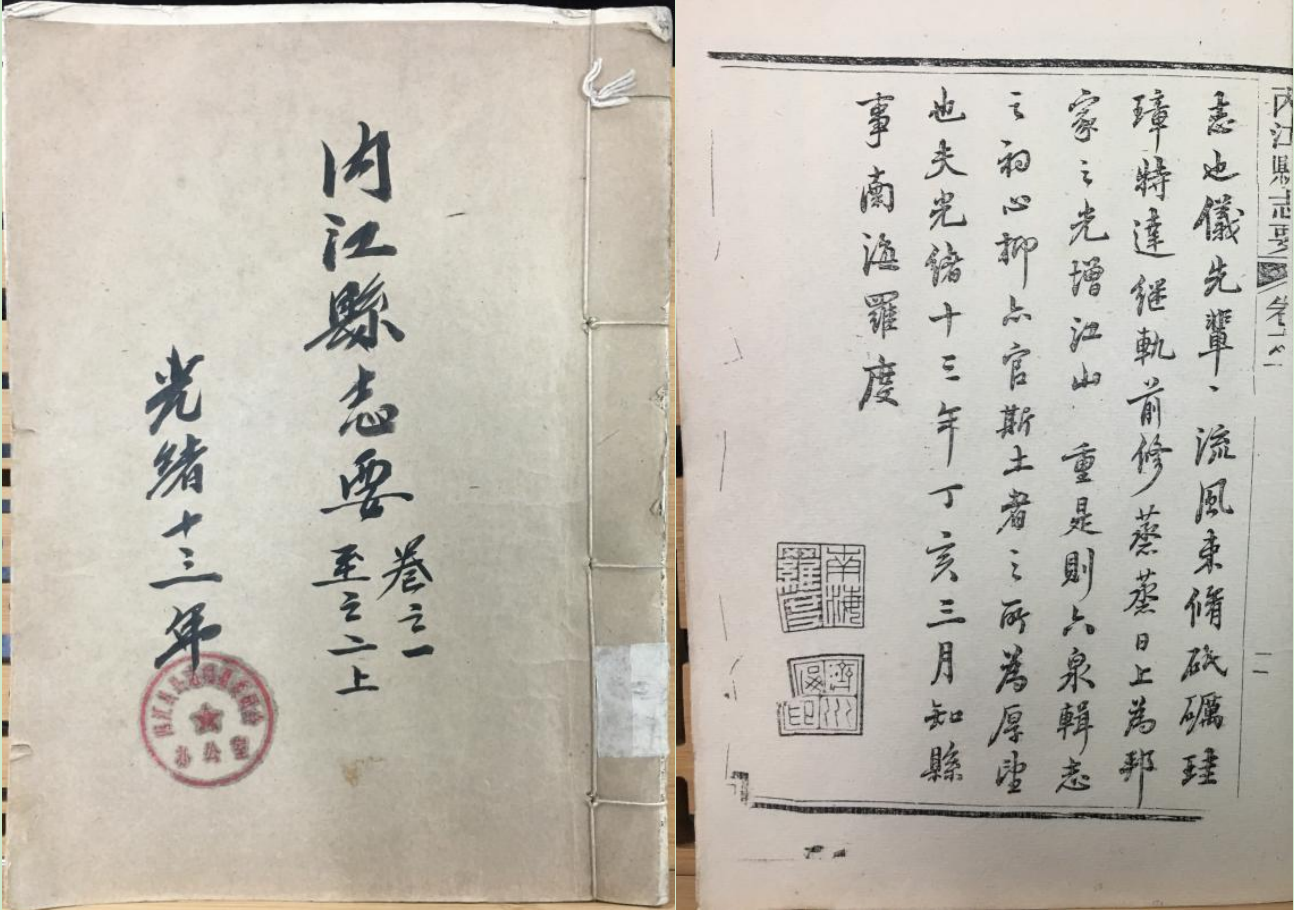 内江縣志要
卷之一
至之二上
光緒十三年
办公室
内江縣志要
意也儀先輩丶流風束脩砥礪珪
璋特達继軌前修蒸蒸日上為邦
家之光增江山重是則六泉輯志
之初心抑亦官斯土者之所為厚望
也夫光緒十三年丁亥三月知縣
事南海羅度
南海
羅度